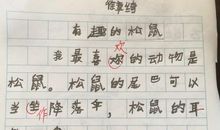 有趣的松鼠
欢
我最喜欢的动物是
松鼠。松鼠的尾巴可以
当坐作降落伞，松鼠的耳